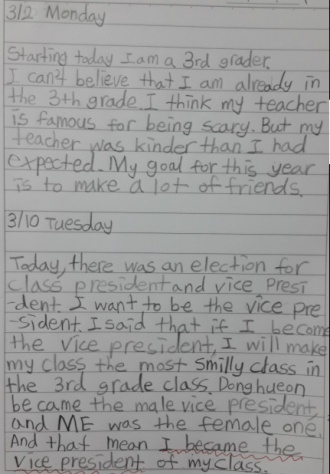 3/2 Monday
Starting today I am a 3rd grader.
I can't believe that I am already in
the 3th grade. I think my teacher
is famous for being scary. But my
teacher was kinder than I had
expected. My goal for this year
is to make a lot of friends.
3/10 Tuesday
Today, there was an election for
class president and vice Presi
-dent. I want to be the vice pre
-sident. I said that if I become
the vice president, I will make
my class the most Smilly class in
the 3rd grade class. Donghueon
be came the male vice president,
and ME was the female one.
And that mean I became the
vice president of my class